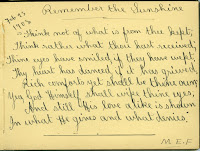 Remember the Sunshine
Feb 23
1903
"Think not of what is from thee kept;
Think rather what thou hast received;
Thine eyes have smiled if they have wept,
Thy heart has danced if it has grieved.
Rich comforts yet shall be thine own;
Yea God Himself shall wipe thine eyes,
And still His love alike is shown
In what He gives and what denies."
M. E. F